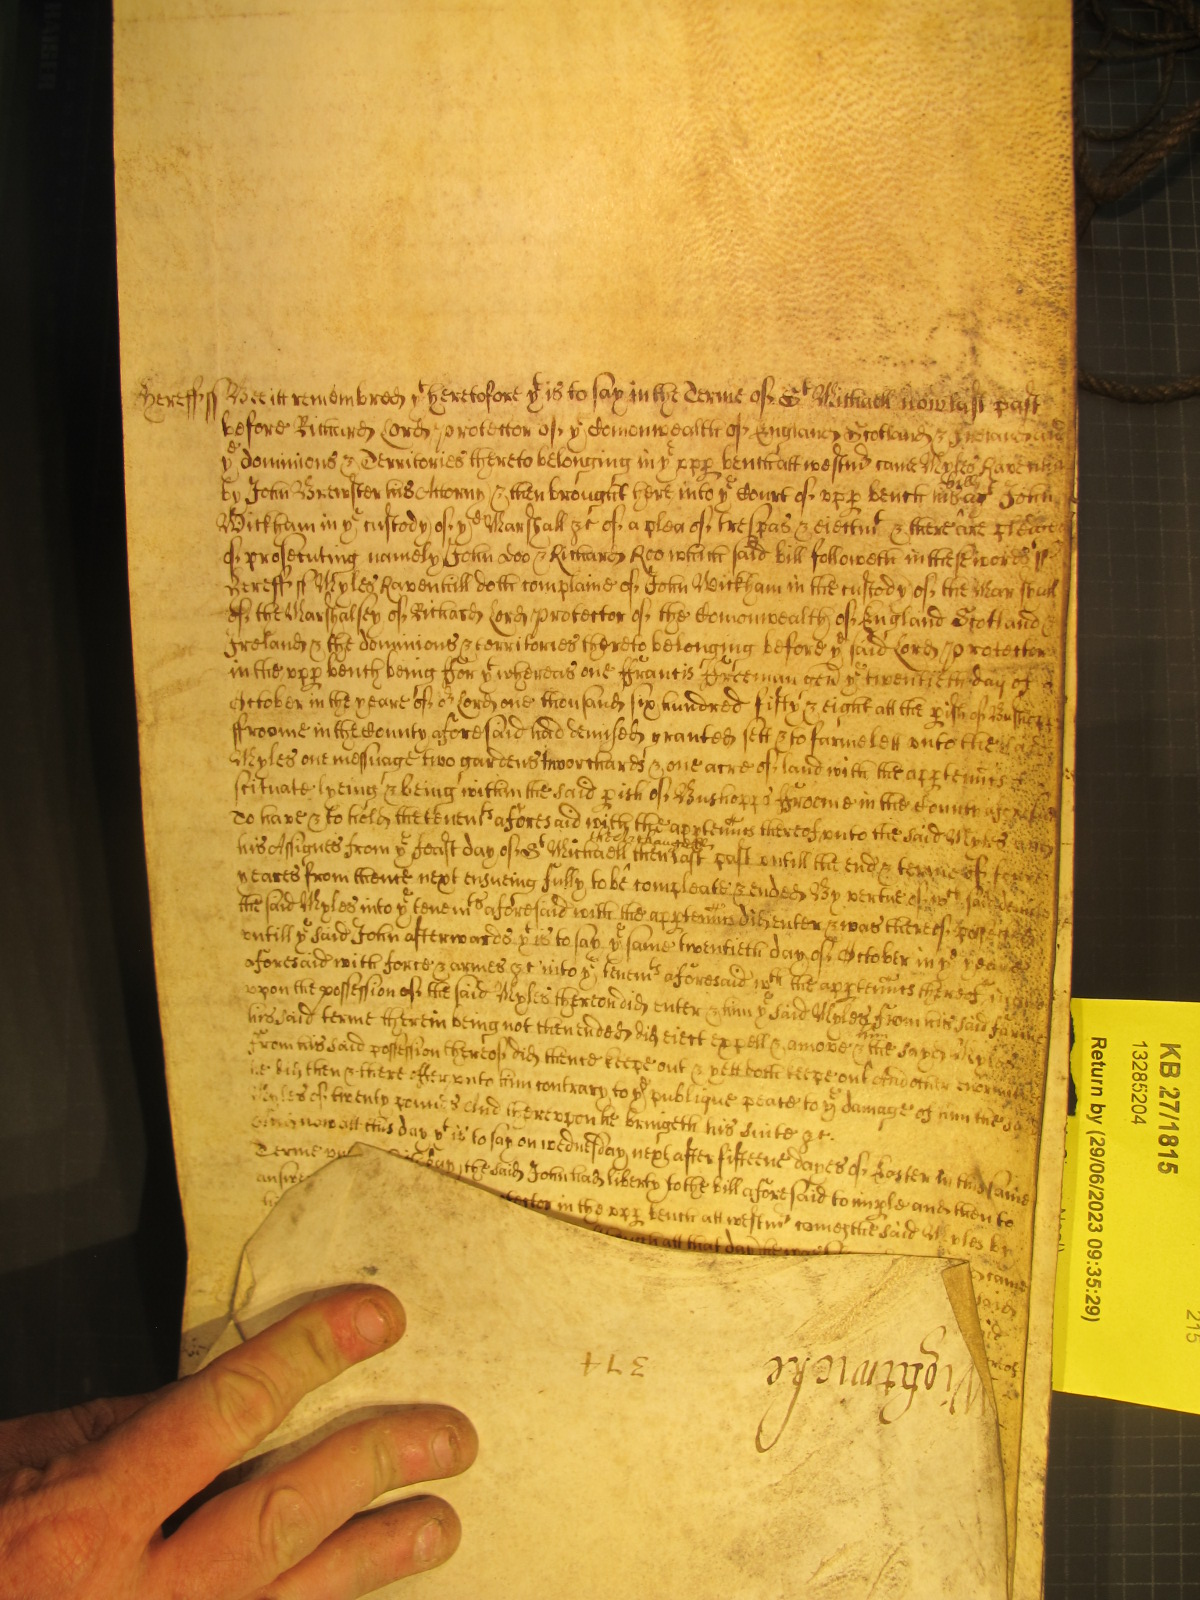 Hereff ss Bee itt remembred yt heretofore yt is to say in the Terme of St Michaell now last past
before Richard Lord Protector of ye Comonwealth of England Scotland & Ireland and
ye dominions & Territories thereto belonging in ye vpp bench att westmr came Myles Raven
by John Brewster his Attorny & then brought here into ye Court of vpp bench his bill agt John
Wickham in ye custody of ye Marshall &c of a plea of trespas & eiectmt & there are pledges
of prosecuting namely John Doo & Richard Roo which said bill followeth in these words ss
Hereff ss Myles Ravenhill doth complaine of John Wickham in the custody of the Marshall
of the Marshalsey of Richard Lord Protector of the Comonwealth of England Scotland &
Ireland & the dominions & territories thereto belonging before ye said Lord Protector
in the vpp bench being For yt whereas one Francis Freeman gen ye twentieth day of
October in the yeare of or Lord one thousand six hundred fifty & eight att the pish of Bushopps
ffroome in the County aforesaid had demised granted sett & to farme lett vnto the said
Myles one messuage two gardens two orchards & one acre of land with the apptenncs
scituate lyeing & being within the said pish of Bushopps Froome in the County aforesaid
To have & to hold the tenemts aforesaid with the apptenncs thereof vnto the said Myles and
his Assignes from ye feast day of St Michaell the Archangell then last past vntill the end & terme of
yeares from thence next ensueing fully to be compleate & ended By vertue of wch said demise
the said Myles into ye tenemts aforesaid with the apptenncs did enter & was thereof possessed
vntill ye said John afterwards yt is to say ye same twentieth day of October in ye yeare
aforesaid with force & armes &c into ye tenemts aforesaid wth the apptenncs thereof in &
vpon the possession of the said Myles thereon did enter & him ye said Myles from his said farme
his said terme therein being not then ended did eiect expell & amove & him the sayd Myles
from his said possession thereof did thence keepe out & yett doth keepe out And other enormities
he did then & there offer vnto him contrary to ye publique peace to ye damage of him the sd
Myles of twenty pounds And therevpon he bringeth his suite &c.
now att this day yt is to say on wednesday next after fifteene dayes of Easter in this same
Terme vntill day the said John had liberty to the bill aforesaid to imple and then to
answere in the vpp bench att westmr comes the said Myles by
all that day he was
came
374
Wightwicke
KB 27/1815
13285204
Return by (29/06/2023 09:35:29)
215